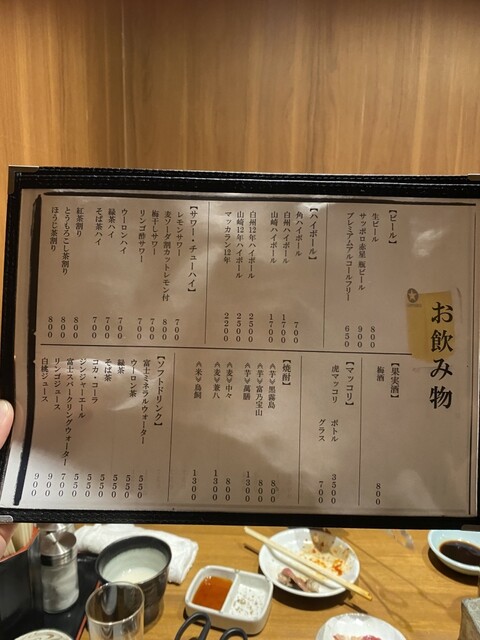 お飲み物
【ビール】
生ビール 800
サッポロ赤星 瓶ビール 900
プレミアムアルコールフリー 650
【ハイボール】
角ハイボール 700
白州ハイボール 1700
山崎ハイボール 1700
白州12年ハイボール 2500
山崎12年ハイボール 2500
マッカラン12年 2200
【サワー・チューハイ】
レモンサワー 700
麦ソーダ割カットレモン付 800
梅干しサワー 700
リンゴ酢サワー 700
ウーロンハイ 700
緑茶ハイ 700
そば茶ハイ 700
紅茶割り 800
とうもろこし茶割り 800
ほうじ茶割り 800
【果実酒】
梅酒 800
【マッコリ】
虎マッコリ ボトル 3500
グラス 700
【焼酎】
≪芋≫黒霧島 800
≪芋≫富乃宝山 800
≪芋≫萬膳 1300
≪麦≫中々 800
≪麦≫兼八 1300
≪米≫鳥飼 1300
【ソフトドリンク】
富士ミネラルウォーター 550
ウーロン茶 550
緑茶 550
そば茶 550
コカ・コーラ 550
ジンジャーエール 550
富士スパークリングウォーター 700
リンゴジュース 900
白桃ジュース 900